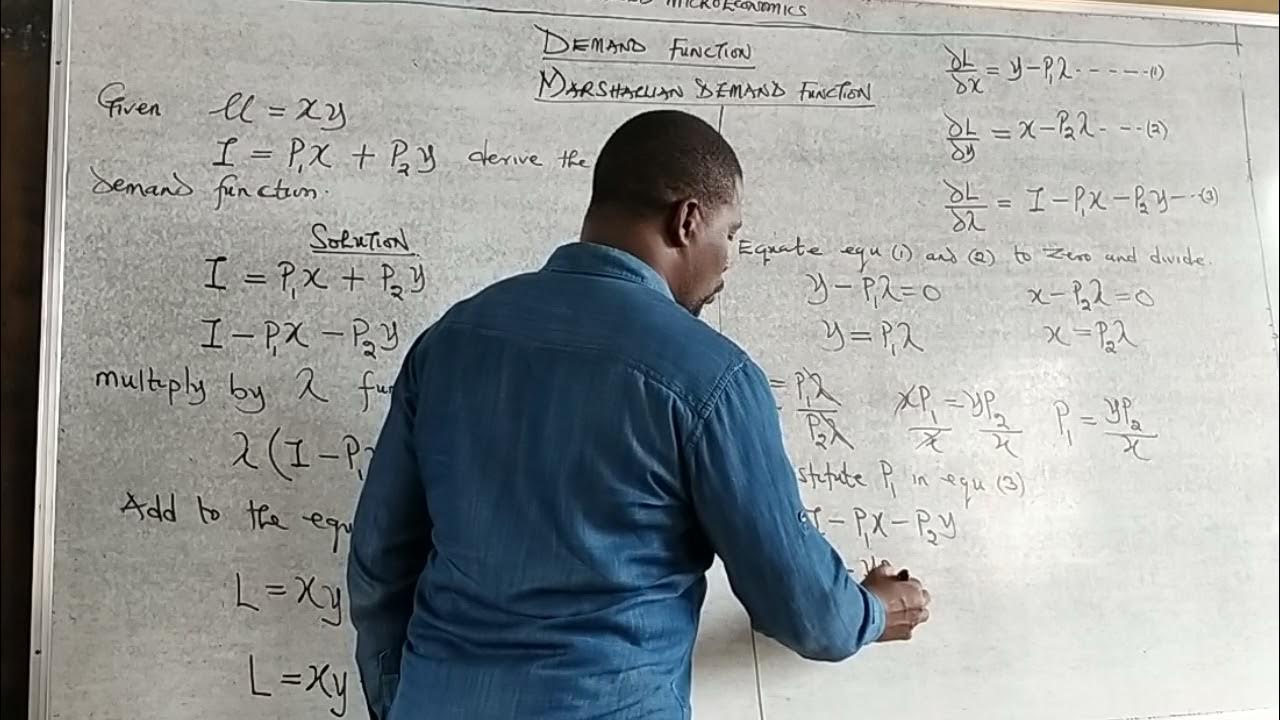 MICROECONOMICS
DEMAND FUNCTION
MARSHALLIAN DEMAND FUNCTION
Given U = xy
I = P₁x + P₂y derive the
demand function.
SOLUTION
I = P₁x + P₂y
I - P₁x - P₂y
multiply by λ
λ(I - P₁
Add to the
L = xy
L = xy
∂L/∂x = y - P₁λ ------(1)
∂L/∂y = x - P₂λ ----(2)
∂L/∂λ = I - P₁x - P₂y --(3)
Equate equ (1) and (2) to zero and divide.
y - P₁λ = 0 x - P₂λ = 0
y = P₁λ x = P₂λ
= P₁λ/P₂λ xP₁/x = yP₂/x P₁ = yP₂/x
P₁ in equ (3)
I - P₁x - P₂y